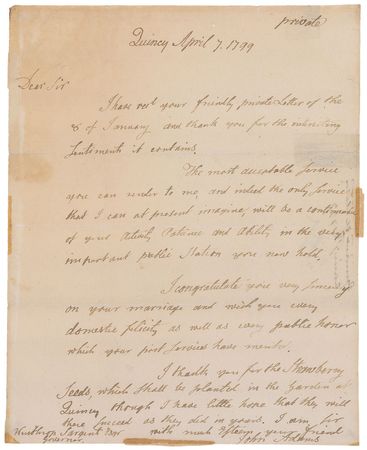 private
Quincy April 7. 1799
Dear Sir
I have recd your friendly private Letter of the
8 of January and thank you for the
Sentiments it contains.
The most acceptable Service
you can render to me, and indeed the only Service
that I can at present imagine, will be a continuance
of your Activity Patience and Ability in the very
important public Station you now hold.
I congratulate you very sincerely
on your marriage and wish you every
domestic felicity as well as every public honor
which your past Services have merited.
I thank you for the Seeds, which shall be planted in the Garden at
Quincy though I have little hope that they will
there succeed as they did in yours. I am Sir
with much Esteem, your friend
John Adams
Winthrop Sargent Esqr
Governor.